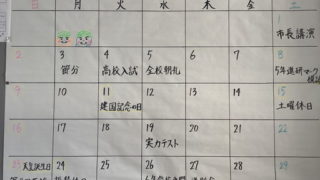 日 月 火 水 木 金 土
1
市長講演
2 3 4 5 6 7 8
節分 高校入試 全校朝礼 5年進研マーク
9 10 11 12 13 14 15
建国記念の日 土曜休日
16 17 18 19 20 21 22
実力テスト
23 天皇誕生日 24 25 26 27 28 29